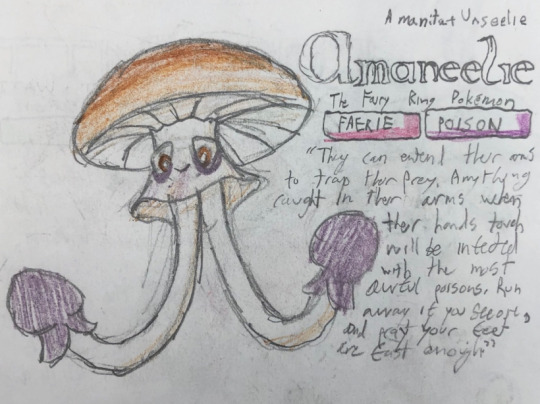 Amanita + Unseelie
Amaneelie
The Fairy Ring Pokémon
FAERIE POISON
"They can extend their arms
to trap their prey. Anything
caught in their arms when
their hands touch
will be infected
with the most
awful poisons. Run
away if you see one,
and pray your feet
are fast enough"